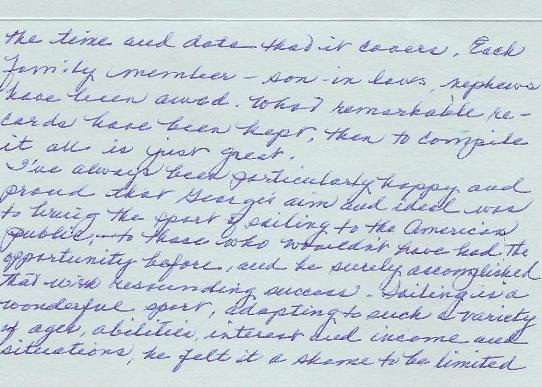 the time and data that it covers. Each
family member - son-in laws, nephews
have been awed. What remarkable re-
cords have been kept, then to compile
it all is just great.
I've always been particularly happy and
proud that George's aim and ideal was
to bring the sport of sailing to the American
public, - to those who wouldn't have had the
opportunity before, and he surely accomplished
that with resounding success. Sailing is a
wonderful sport, adapting to such a variety
of ages, abilities, interest and income and
situations, he felt it a shame to be limited